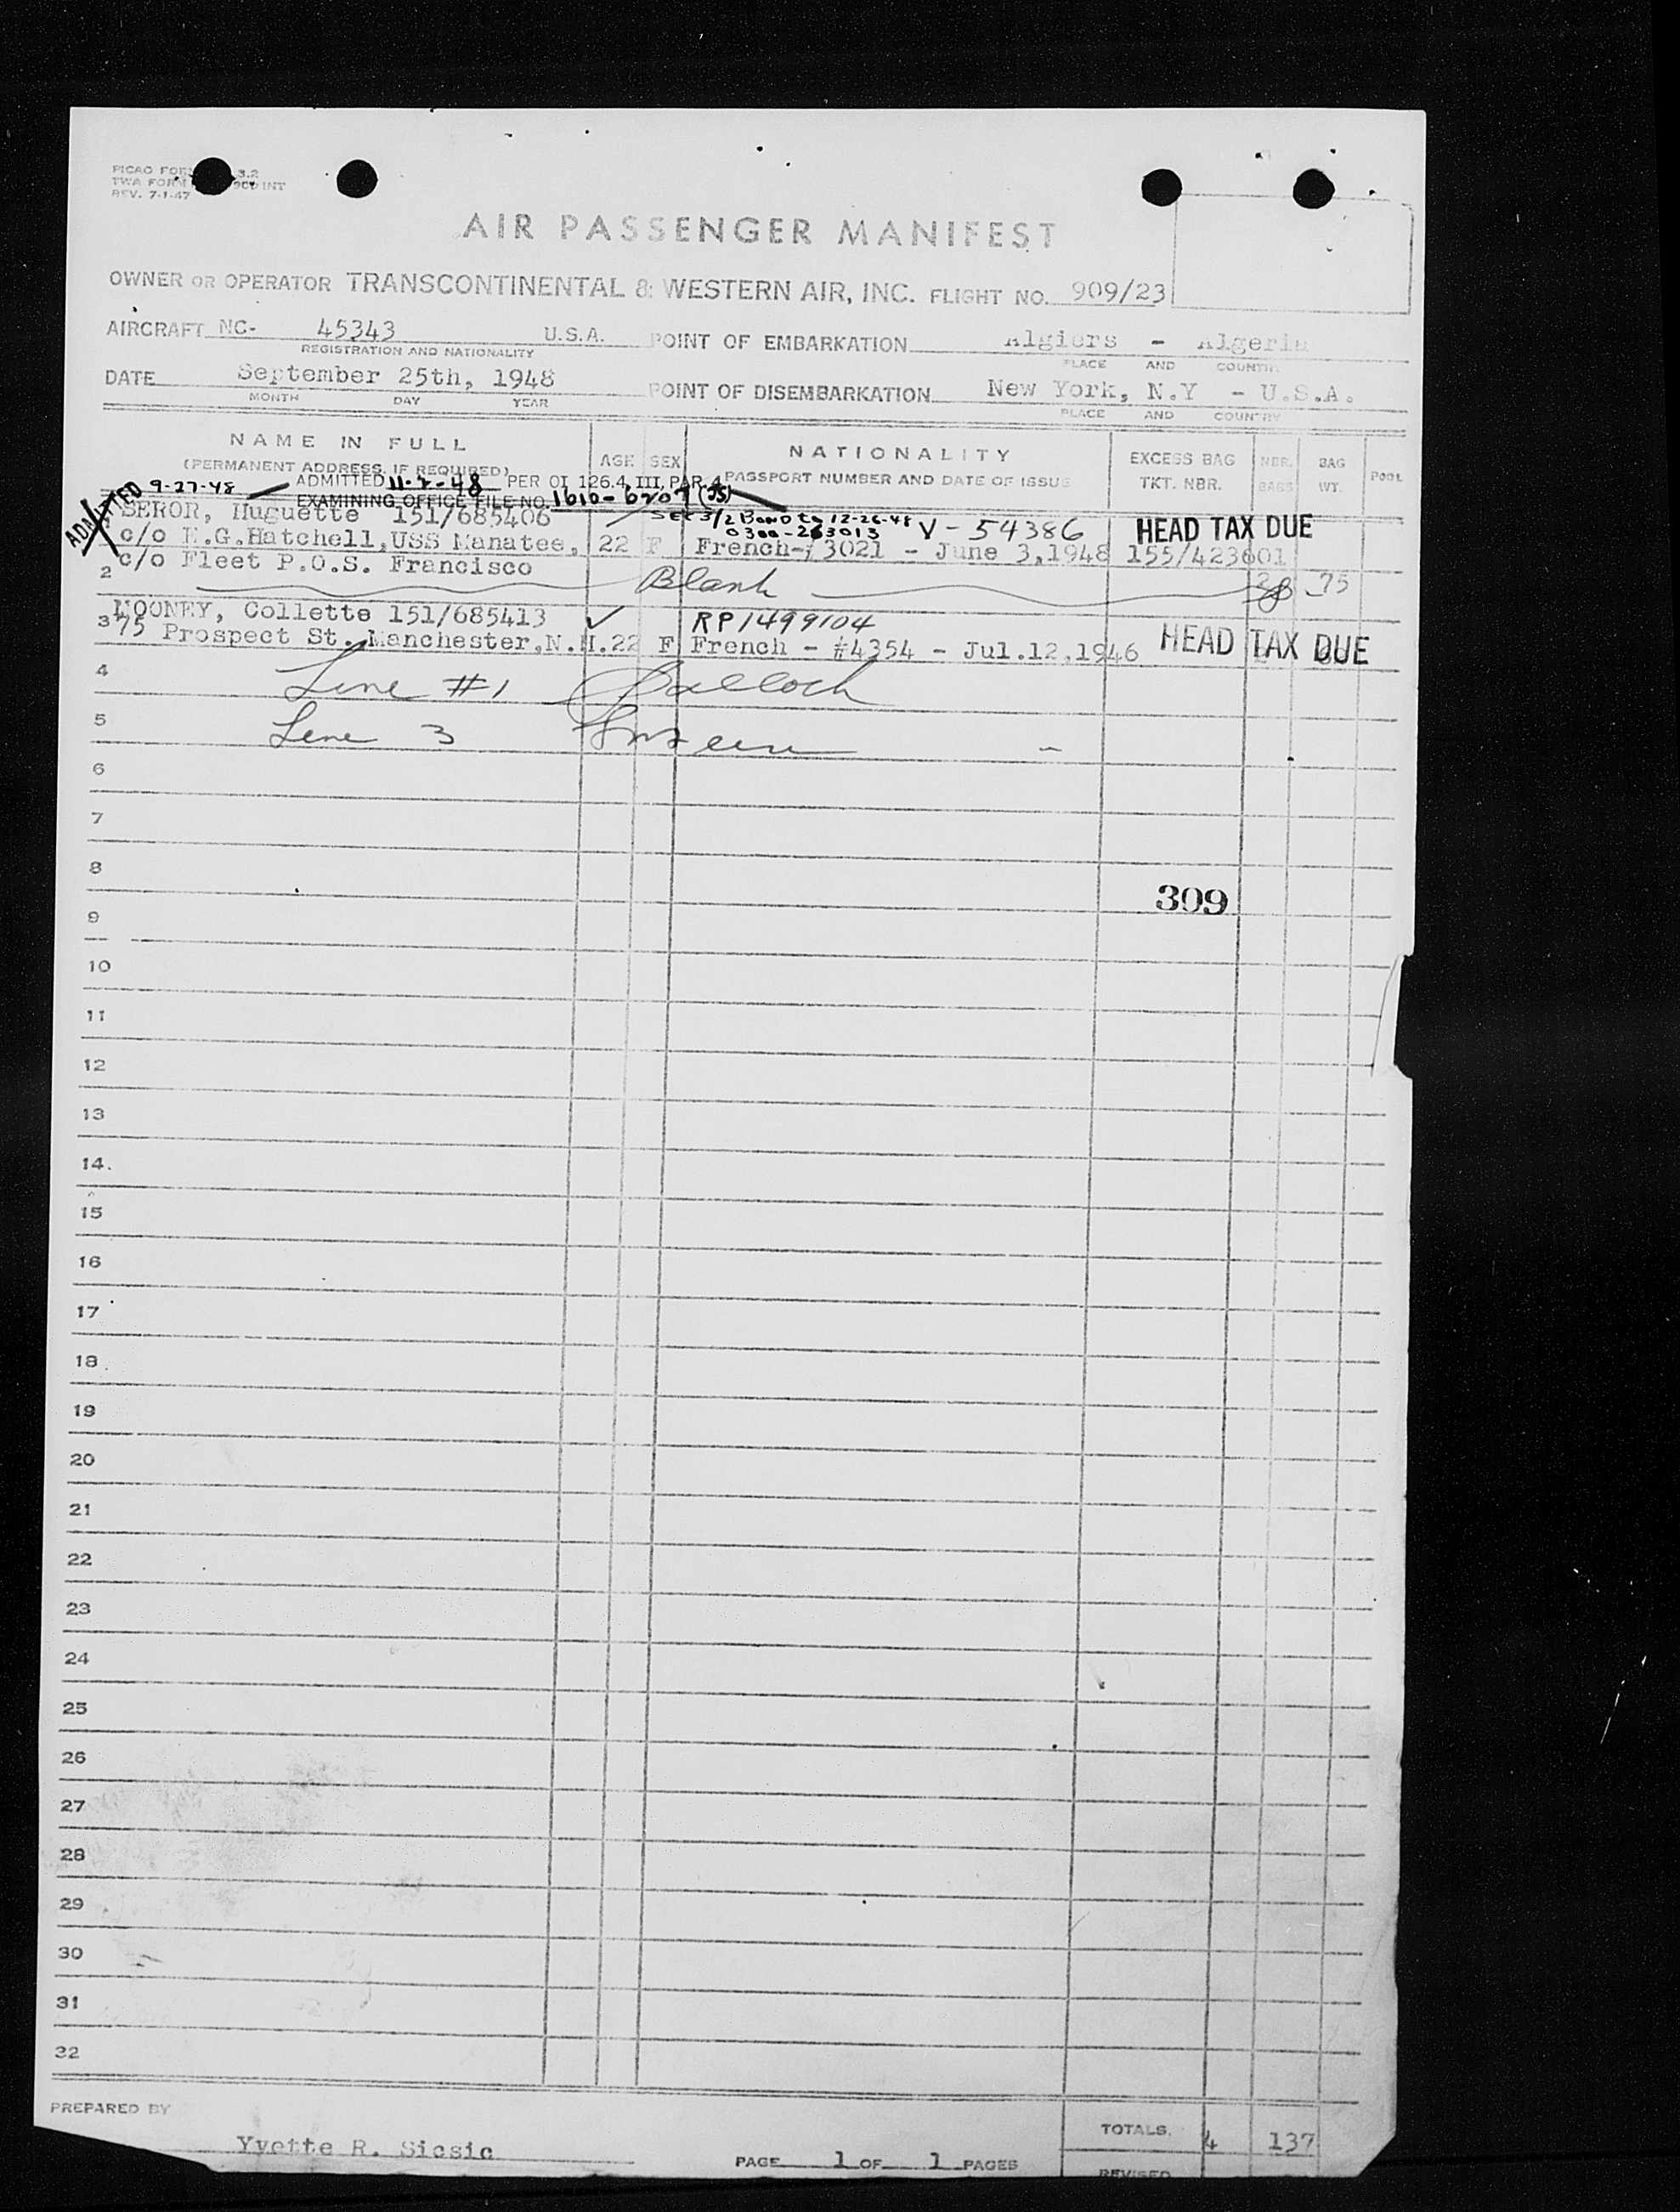 PICAO FOR 3.2
TWA FORM 900 INT
REV. 7-1-47
AIR PASSENGER MANIFEST
OWNER OR OPERATOR TRANSCONTINENTAL & WESTERN AIR, INC. FLIGHT NO. 909/23
AIRCRAFT NC- 45343 U.S.A. POINT OF EMBARKATION Algiers - Algeria
REGISTRATION AND NATIONALITY PLACE AND COUNTRY
DATE September 25th, 1948 POINT OF DISEMBARKATION New York, N.Y - U.S.A.
MONTH DAY YEAR PLACE AND COUNTRY
NAME IN FULL AGE SEX NATIONALITY EXCESS BAG NBR. BAG POOL
(PERMANENT ADDRESS, IF REQUIRED) PASSPORT NUMBER AND DATE OF ISSUE TKT. NBR. BAGS WT.
ADMITTED 9-27-48 ADMITTED 11-2-48 PER OI 126.4, III, PAR. 4
EXAMINING OFFICE FILE NO. 1610-6207 (JS)
SEROR, Huguette 151/685406 SEC 3/2 Bond to 12-26-48 V-54386 HEAD TAX DUE
0300-263013
c/o H.G.Hatchell,USS Manatee, 22 F French-# 3021 - June 3,1948 155/423601
c/o Fleet P.O.S. Francisco
2 Blank 75
MOONEY, Collette 151/685413 RP1499104
3 75 Prospect St. Manchester,N.H. 22 F French - #4354 - Jul.12,1946 HEAD TAX DUE
4 Line #1
5 Line 3
6
7
8
309
9
10
11
12
13
14.
15
16
17
18
19
20
21
22
23
24
25
26
27
28
29
30
31
32
PREPARED BY
Yvette R. Sicsic PAGE 1 OF 1 PAGES TOTALS. 4 137
REVISED